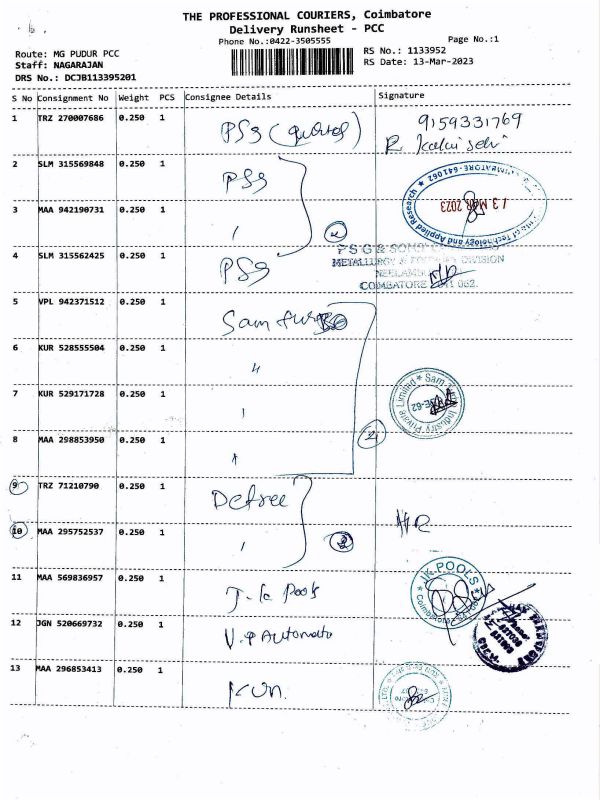 THE PROFESSIONAL COURIERS, Coimbatore
Delivery Runsheet - PCC
Phone No.:0422-3505555
Page No.:1
Route: MG PUDUR PCC
RS No.: 1133952
Staff: NAGARAJAN
RS Date: 13-Mar-2023
DRS No.: DCJB113395201
S No Consignment No Weight PCS Consignee Details Signature
1 TRZ 270007686 0.250 1 PSG 9159331769
R
2 SLM 315569848 0.250 1 PSG
3 MAA 942190731 0.250 1 "
13 MAR 2023
of Technology and Applied Research ★ COIMBATORE-641062
4 SLM 315562425 0.250 1 PSG
PSG & SONS
METALLURGY & DIVISION
COIMBATORE 641 062.
5 VPL 942371512 0.250 1 Sam
6 KUR 528555504 0.250 1 "
7 KUR 529171728 0.250 1 "
Industry Private Limited ★ Sam
8 MAA 298853950 0.250 1 "
9 TRZ 71210790 0.250 1
10 MAA 295752537 0.250 1 "
11 MAA 569836957 0.250 1 J.K Pools
J.K.POOLS
12 JGN 520669732 0.250 1 V.P Automato
13 MAA 296853413 0.250 1